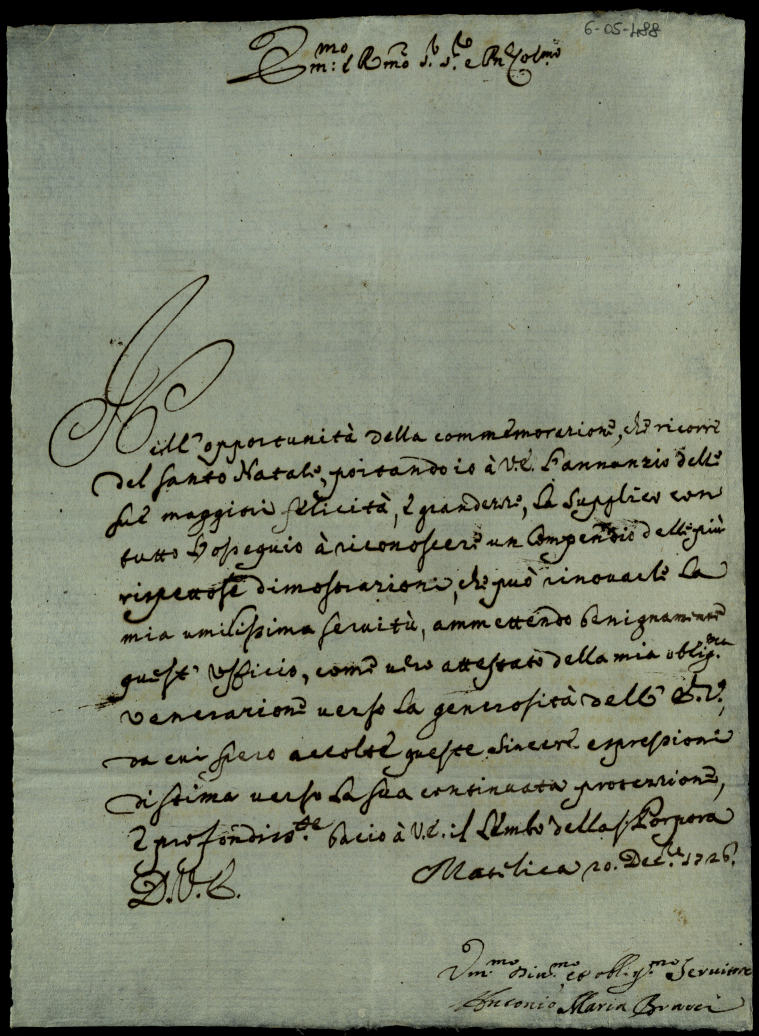 6-05-488
Em:mo e Rmo Sr. Sr. e Pne Colmo
Nell'opportunità della commemorazione, che ricorre
del Santo Natale, portando io à V.E. l'annunzio delle
sue maggiori felicità, e grandezze, la supplico con
tutto l'ossequio à riconoscere un compendio delle più
rispettose dimostrazioni, che può rinovarle la
mia umilissima servitù, ammettendo benignamente
quest'ufficio, come vero attestato della mia oblig.ma
venerazione verso la generosità dell'E.V.,
da cui spero accolte queste sincere espressioni
di stima verso la sua continuata protezzione,
e profondiss.te bacio à V.E. il lembo della S. Porpora
D.V.E. Matelica 20. Dec.re 1726.
Um.mo Div.mo et obblig.mo Servitore
Antonio Maria Bracci